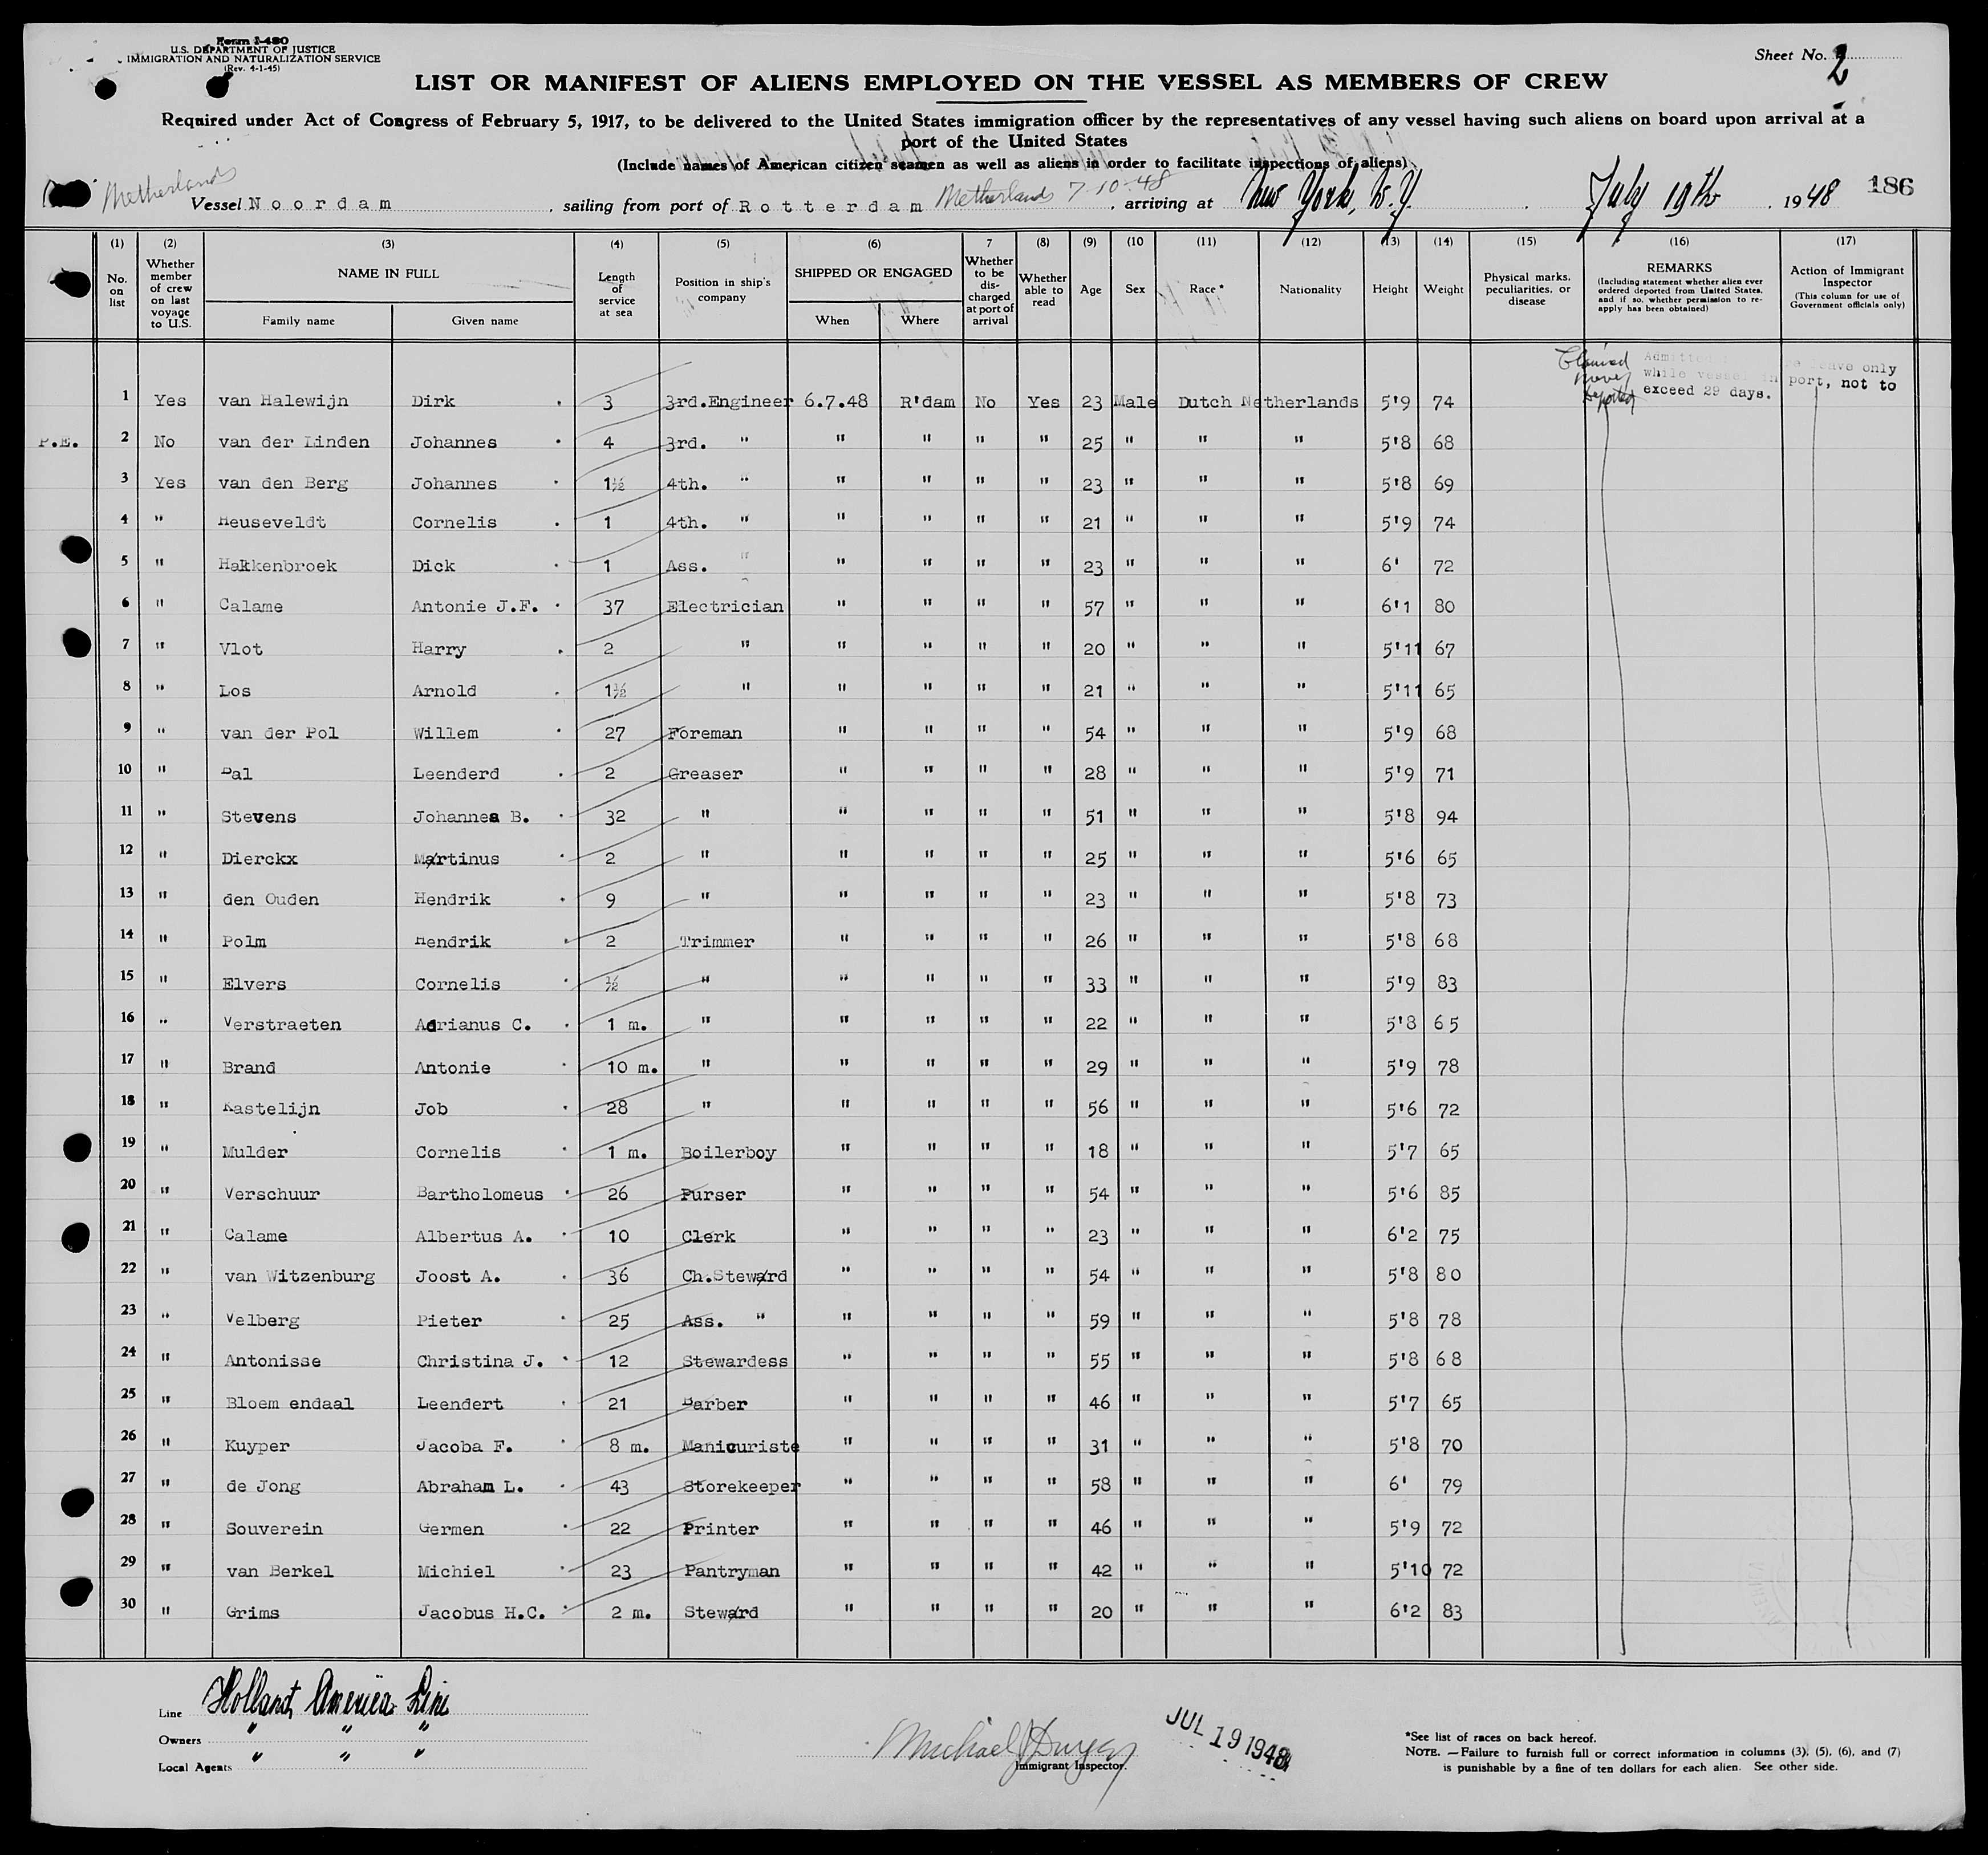 Form I-480
U.S. DEPARTMENT OF JUSTICE
IMMIGRATION AND NATURALIZATION SERVICE
(Rev. 4-1-45)
Sheet No. 2
LIST OR MANIFEST OF ALIENS EMPLOYED ON THE VESSEL AS MEMBERS OF CREW
Required under Act of Congress of February 5, 1917, to be delivered to the United States immigration officer by the representatives of any vessel having such aliens on board upon arrival at a
port of the United States
(Include names of American citizen seamen as well as aliens in order to facilitate inspections of aliens)
Netherlands
Vessel Noordam, sailing from port of Rotterdam Netherlands 7-10-48, arriving at New York, N.Y. July 19th 1948 186
(1) No. on list
(2) Whether member of crew on last voyage to U.S.
(3) NAME IN FULL Family name Given name
(4) Length of service at sea
(5) Position in ship's company
(6) SHIPPED OR ENGAGED When Where
7 Whether to be discharged at port of arrival
(8) Whether able to read
(9) Age
(10 Sex
(11) Race*
(12) Nationality
(13) Height
(14) Weight
(15) Physical marks, peculiarities, or disease
(16) REMARKS (Including statement whether alien ever ordered deported from United States, and if so, whether permission to reapply has been obtained)
(17) Action of Immigrant Inspector (This column for use of Government officials only)
Claimed never deported
Admitted leave only
while vessel in port, not to
exceed 29 days.
1 Yes van Halewijn Dirk 3 3rd.Engineer 6.7.48 R'dam No Yes 23 Male Dutch Netherlands 5'9 74
P.E. 2 No van der Linden Johannes 4 3rd. " " " " " 25 " " " 5'8 68
3 Yes van den Berg Johannes 1½ 4th. " " " " " 23 " " " 5'8 69
4 " Heuseveldt Cornelis 1 4th. " " " " " 21 " " " 5'9 74
5 " Hakkenbroek Dick 1 Ass. " " " " " 23 " " " 6' 72
6 " Calame Antonie J.F. 37 Electrician " " " " 57 " " " 6'1 80
7 " Vlot Harry 2 " " " " " 20 " " " 5'11 67
8 " Los Arnold 1½ " " " " " 21 " " " 5'11 65
9 " van der Pol Willem 27 Foreman " " " " 54 " " " 5'9 68
10 " Bal Leenderd 2 Greaser " " " " 28 " " " 5'9 71
11 " Stevens Johannes B. 32 " " " " " 51 " " " 5'8 94
12 " Dierckx Martinus 2 " " " " " 25 " " " 5'6 65
13 " den Ouden Hendrik 9 " " " " " 23 " " " 5'8 73
14 " Polm Hendrik 2 Trimmer " " " " 26 " " " 5'8 68
15 " Elvers Cornelis ½ " " " " " 33 " " " 5'9 83
16 " Verstraeten Adrianus C. 1 m. " " " " " 22 " " " 5'8 65
17 " Brand Antonie 10 m. " " " " " 29 " " " 5'9 78
18 " Kastelijn Job 28 " " " " " 56 " " " 5'6 72
19 " Mulder Cornelis 1 m. Boilerboy " " " " 18 " " " 5'7 65
20 " Verschuur Bartholomeus 26 Purser " " " " 54 " " " 5'6 85
21 " Calame Albertus A. 10 Clerk " " " " 23 " " " 6'2 75
22 " van Witzenburg Joost A. 36 Ch.Steward " " " " 54 " " " 5'8 80
23 " Velberg Pieter 25 Ass. " " " " " 59 " " " 5'8 78
24 " Antonisse Christina J. 12 Stewardess " " " " 55 " " " 5'8 68
25 " Bloem endaal Leendert 21 Barber " " " " 46 " " " 5'7 65
26 " Kuyper Jacoba F. 8 m. Manicuriste " " " " 31 " " " 5'8 70
27 " de Jong Abraham L. 43 Storekeeper " " " " 58 " " " 6' 79
28 " Souverein Germen 22 Printer " " " " 46 " " " 5'9 72
29 " van Berkel Michiel 23 Pantryman " " " " 42 " " " 5'10 72
30 " Grims Jacobus H.C. 2 m. Steward " " " " 20 " " " 6'2 83
Line Holland America Line
Owners " " "
Local Agents " " "
Michael Dwyer
Immigrant Inspector.
JUL 19 1948
*See list of races on back hereof.
NOTE.—Failure to furnish full or correct information in columns (3), (5), (6), and (7)
is punishable by a fine of ten dollars for each alien. See other side.